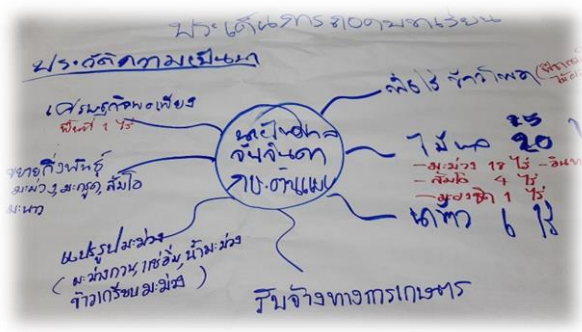 ประเด็นการถอดบทเรียน
ประวัติความเป็นมา
เศรษฐกิจพอเพียง
พื้นที่ 1 ไร่
ขยายกิ่งพันธุ์
มะม่วง, มะกรูด, ส้มโอ
มะนาว
แปรรูปมะม่วง
( มะม่วงกวน, แช่อิ่ม, น้ำมะม่วง
ข้าวเกรียบมะม่วง )
จันจินดา
พืชไร่ ข้าวโพด
25
ไม้ผล 20
- มะม่วง 18 ไร่
- ส้มโอ 4 ไร่
1 ไร่
นาข้าว 6 ไร่
รับจ้างทางการเกษตร